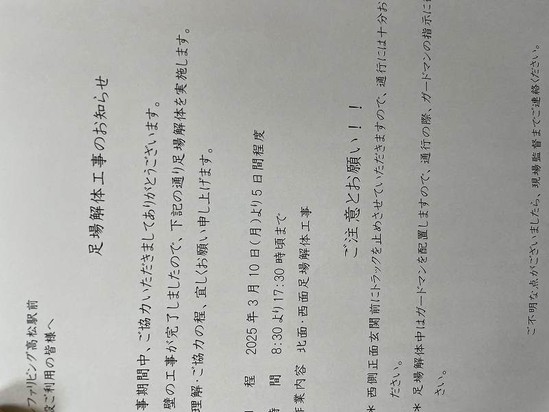 ファリビング高松駅前
ご利用の皆様へ
足場解体工事のお知らせ
事期間中、ご協力いただきましてありがとうございます。
壁の工事が完了しましたので、下記の通り足場解体を実施します。
理解ご協力の程、宜しくお願い申し上げます。
程 2025年3月10日(月)より5日間程度
時 間 8:30より17:30時頃まで
作業内容 北面・西面足場解体工事
ご注意とお願い!!
* 西側正面玄関前にトラックを止めさせていただきますので、通行には十分お
ださい。
* 足場解体中はガードマンを配置しますので、通行の際、ガードマンの指示に
さい。
ご不明な点がございましたら、現場監督までご連絡ください。